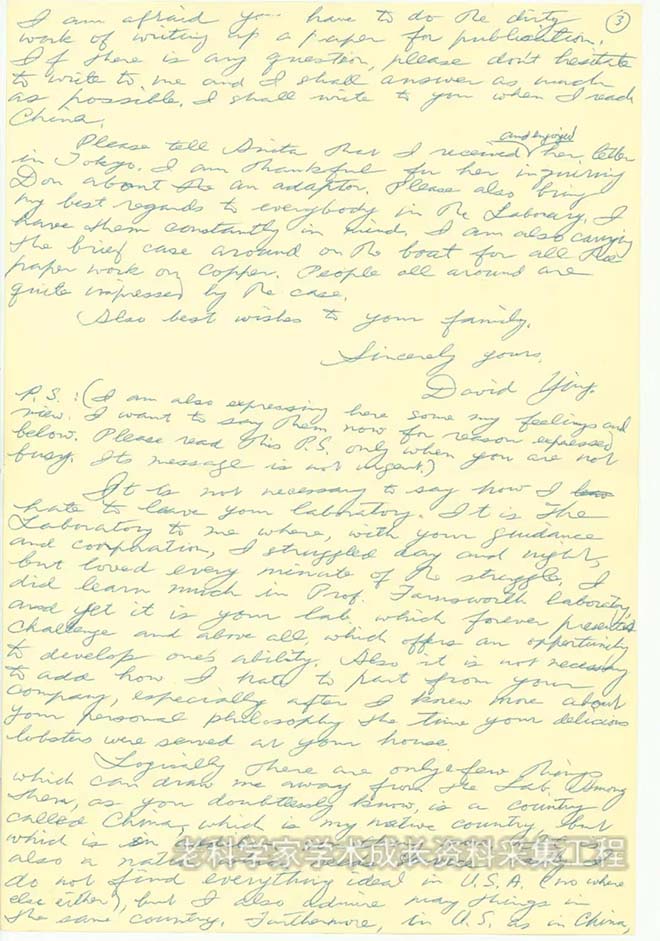 ③
I am afraid you have to do the dirty
work of writing up a paper for publication.
If there is any question, please don't hesitate
to write to me and I shall answer as much
as possible. I shall write to you when I reach
China.
Please tell Anita that I received and enjoyed her letter
in Tokyo. I am thankful for her inquiring
Don about the an adaptor. Please also bring
my best regards to everybody in the Laborary. I
have them constantly in mind. I am also carrying
the brief case around on the boat for all the
paper work on Copper. People all around are
quite impressed by the case.
Also best wishes to your family.
Sincerely yours,
David Ying.
P.S.: (I am also expressing here some my feelings and
view. I want to say them now for reason expressed
below. Please read this P.S. only when you are not
busy. Its message is not urgent.)
It is not necessary to say how I
hate to leave your laboratory. It is the
Laboratory to me where, with your guidance
and cooperation, I struggled day and night,
but loved every minute of the struggle. I
did learn much in Prof. Farnsworth laboratory,
and yet it is your lab. which forever presents
challenge and above all, which offers an opportunity
to develop one's ability. Also it is not necessary
to add how I hate to part from your
company, especially after I knew more about
your personal philosophy the time your delicious
lobsters were served at your house.
Logically there are only few things
which can draw me away from the Lab. Among
them, as you doubtlessly know, is a country
called China, which is my native country but
which is in
老科学家学术成长资料采集工程
also a
do not find everything ideal in U.S.A. (no where
else either), but I also admire many things in
the same country. Furthermore, in U.S. as in China,